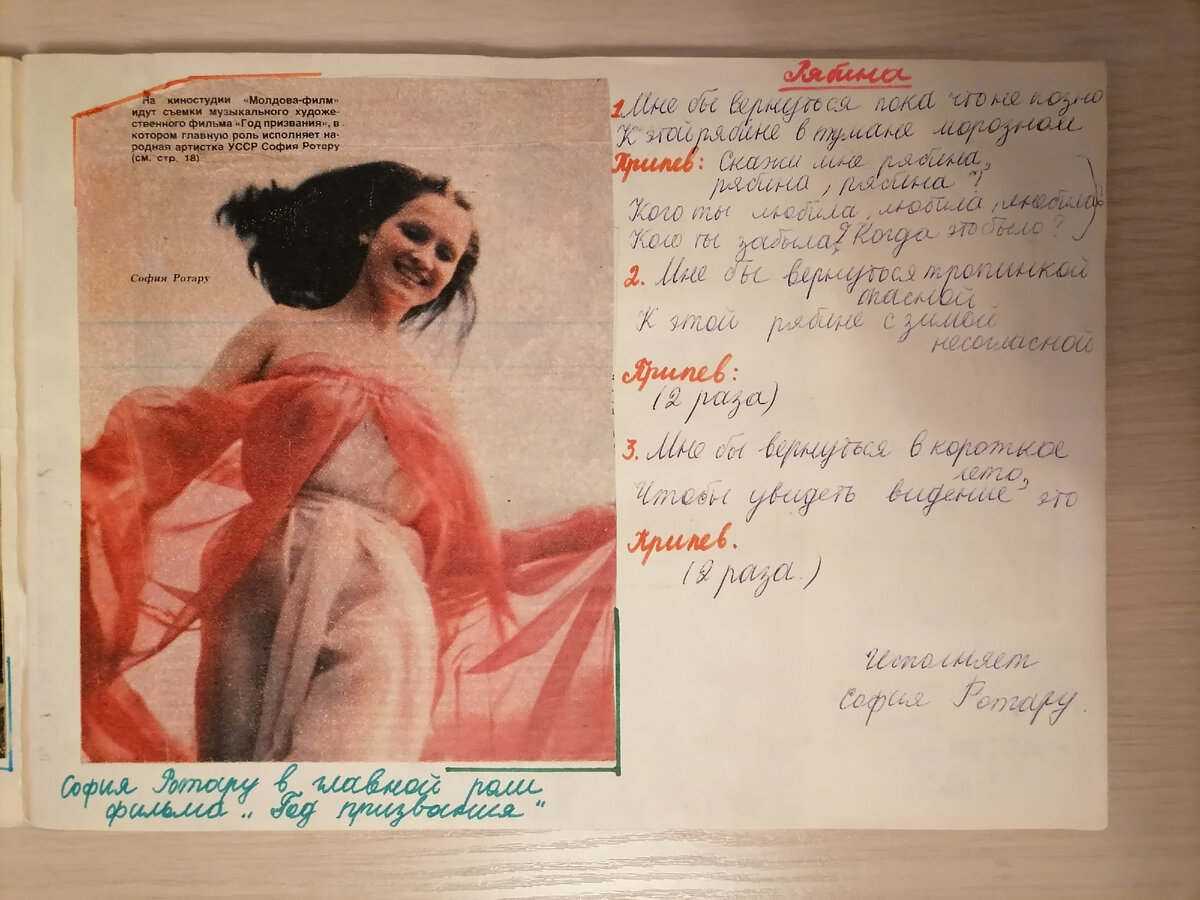 На киностудии «Молдова-филм»
идут съемки музыкального художе-
ственного фильма «Год призвания», в
котором главную роль исполняет на-
родная артистка УССР София Ротару
(см. стр. 18)
София Ротару
София Ротару в главной роли
фильма „Год призвания"
Рябина
1. Мне бы вернуться пока что не позно
К этой рябине в тумане морозном
Припев: Скажи мне рябина,
рябина, рябина?
Кого ты любила, любила, любила?
Кого ты забыла? Когда это было?
2. Мне бы вернуться тропинкой
опасной
К этой рябине с зимой
несогласной
Припев:
(2 раза)
3. Мне бы вернуться в короткое
лето,
Чтобы увидеть видение это
Припев.
(2 раза.)
Исполняет
София Ротару.